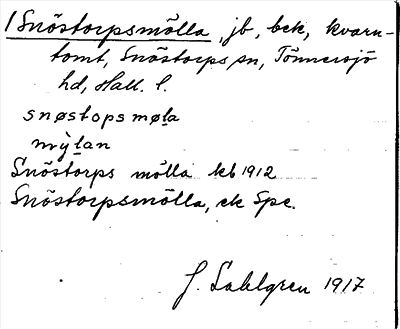 1 Snöstorpsmölla, jb, bek, kvarn-
tomt, Snöstorps sn, Tönnersjö
hd, Hall. l.
snøstops møla
mỳlan
Snöstorps mölla kb 1912
Snöstorpsmölla, ek Spc.
J. Sahlgren 1917